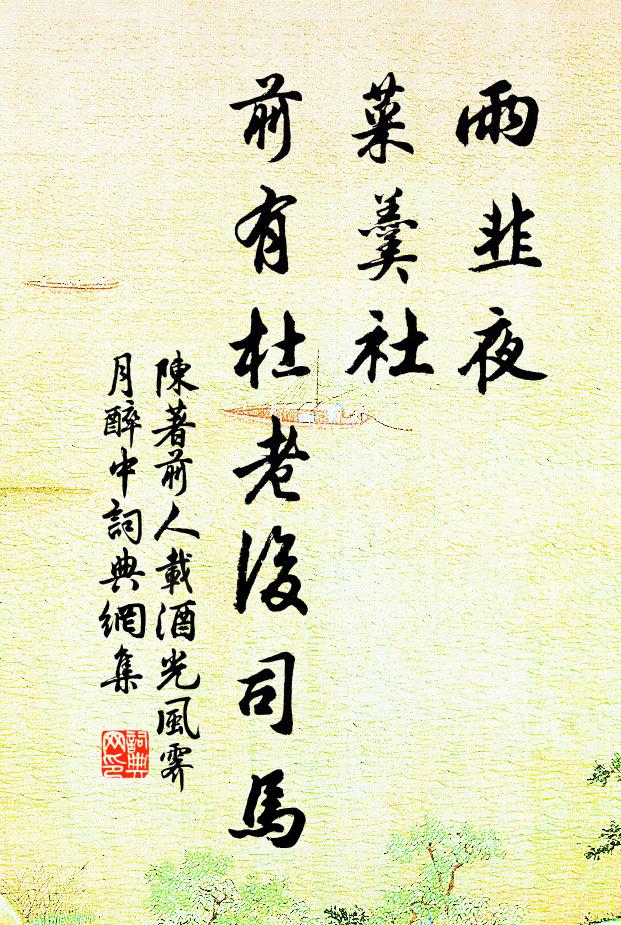 雨韭夜
菜羹社
前有杜老後司馬
陳著前人載酒光風霽
月醉中詞典網集
詞典网印